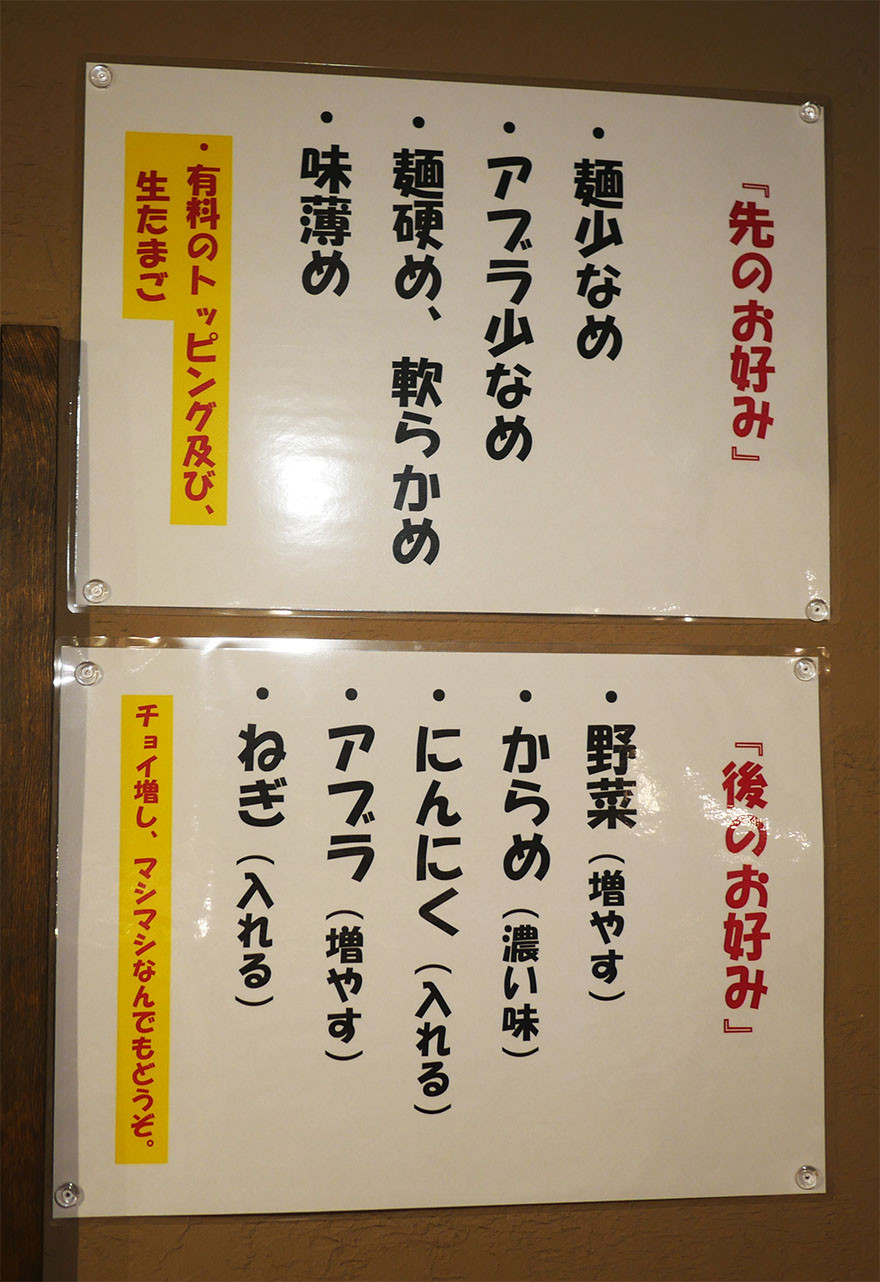 『先のお好み』
・麺少なめ
・アブラ少なめ
・麺硬め、軟らかめ
・味薄め
・有料のトッピング及び、
生たまご
『後のお好み』
・野菜(増やす)
・からめ(濃い味)
・にんにく(入れる)
・アブラ(増やす)
・ねぎ(入れる)
チョイ増し、マシマシなんでもどうぞ。